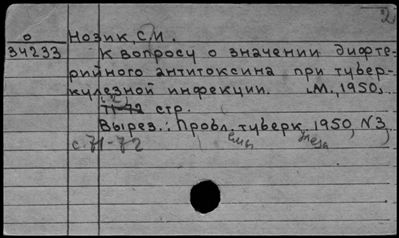 2
о Нозик, С.М.
34233 К вопросу о значении дифте-
рийного антитоксина при тубер-
кулезной инфекции. М., 1950.
(2)
71-72 стр.
Вырез.: Пробл. туберк., 1950, N3,
с. 71-72